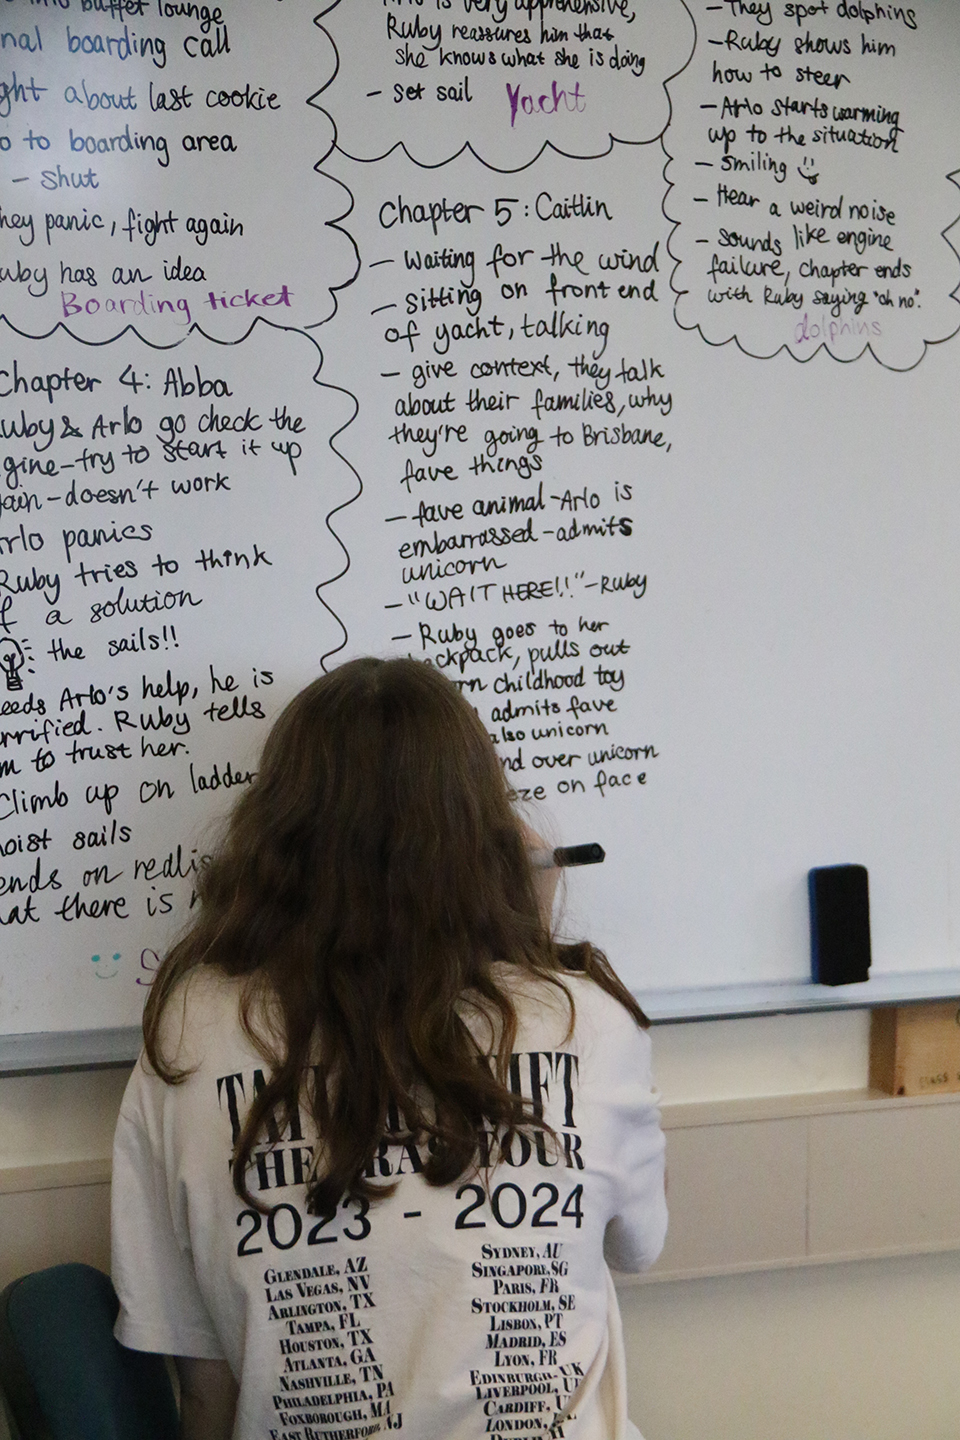 buffet lounge
boarding call
about last cookie
to boarding area
- shut
hey panic, fight again
uby has an idea
Boarding ticket
is very apprehensive,
Ruby reassures him that
she knows what she is doing
- set sail
Yacht
- They spot dolphins
- Ruby shows him
how to steer
- Arlo starts warming
up to the situation
- smiling
- Hear a weird noise
- sounds like engine
failure, chapter ends
with Ruby saying "oh no".
dolphins
Chapter 4: Abba
uby & Arlo go check the
gine - try to start it up
ain - doesn't work
rlo panics
Ruby tries to think
f a solution
the sails!!
eeds Arlo's help, he is
rrified. Ruby tells
m to trust her.
Climb up on ladder
hoist sails
ends on realis
at there is
Chapter 5: Caitlin
- waiting for the wind
- sitting on front end
of yacht, talking
- give context, they talk
about their families, why
they're going to Brisbane,
fave things
- fave animal - Arlo is
embarrassed - admits
unicorn
- "WAIT HERE!!" - Ruby
- Ruby goes to her
ackpack, pulls out
rn childhood toy
admits fave
also unicorn
nd over unicorn
eze on face
THE ERAS TOUR
2023 - 2024
GLENDALE, AZ
LAS VEGAS, NV
ARLINGTON, TX
TAMPA, FL
HOUSTON, TX
ATLANTA, GA
NASHVILLE, TN
PHILADELPHIA, PA
FOXBOROUGH, MA
EAST RUTHERFORD, NJ
SYDNEY, AU
SINGAPORE, SG
PARIS, FR
STOCKHOLM, SE
LISBON, PT
MADRID, ES
LYON, FR
EDINBURGH, UK
LIVERPOOL, U
CARDIFF, U
LONDON,